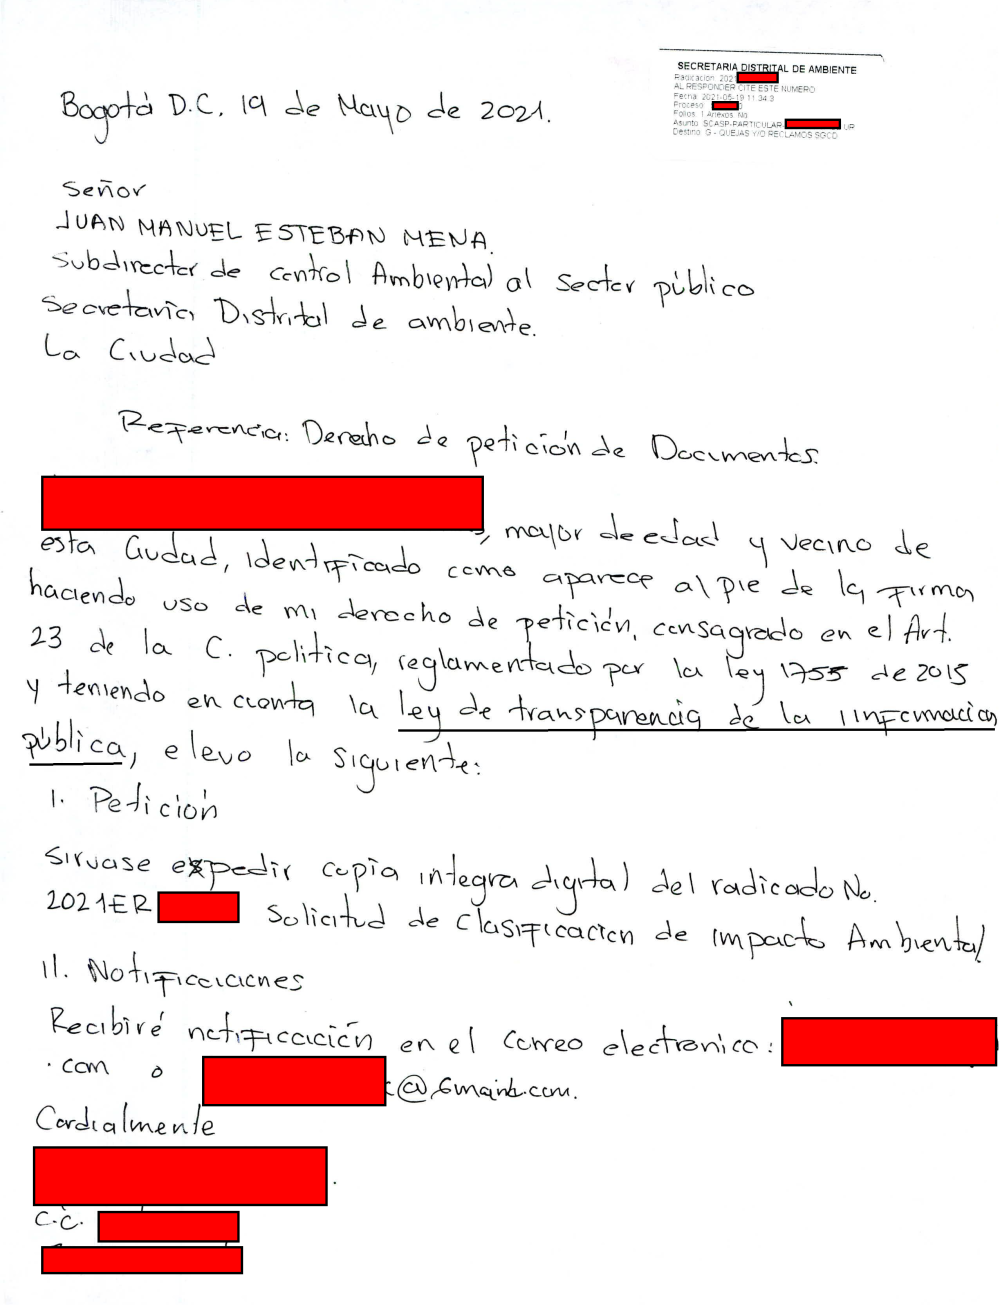 SECRETARIA DISTRITAL DE AMBIENTE
Radicación: 2021
AL RESPONDER CITE ESTE NUMERO
Fecha: 2021-05-19 11:34:3
Proceso:
Folios: 1 Anexos: No
Asunto: SCASP-PARTICULAR- UR
Destino: G - QUEJAS Y/O RECLAMOS SGCD
Bogotá D.C. 19 de Mayo de 2021.
Señor
JUAN MANUEL ESTEBAN MENA.
Subdirector de control Ambiental al sector público
Secretaría Distrital de ambiente.
La Ciudad
Referencia: Derecho de petición de Documentos.
, mayor de edad y vecino de
esta Ciudad, identificado como aparece al pie de la firma
haciendo uso de mi derecho de petición, consagrado en el Art.
23 de la C. política, reglamentado por la ley 1755 de 2015
y teniendo en cuenta la ley de transparencia de la iinformacion
pública, elevo la siguiente:
I. Petición
Sirvase expedir copia integra digital del radicado No.
2021ER Solicitud de Clasificacion de impacto Ambiental
II. Notificaciones
Recibiré notificación en el correo electronico:
.com o @Gmail.com.
Cordialmente
.
C.C.